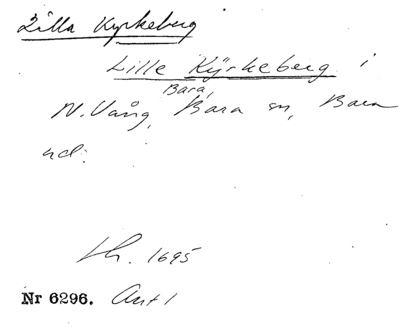 Lilla Kyrkeberg
Lille Kyrkeberg i
Bara,
N. Vång, Bara sn, Bara
hd.
Lh. 1695
Nr 6296. Ant 1